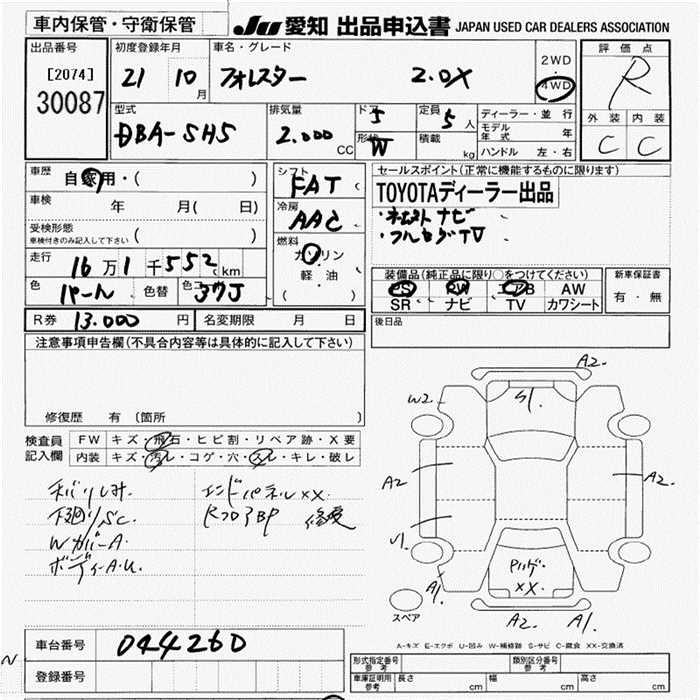 車内保管・守衛保管
JU 愛知 出品申込書 JAPAN USED CAR DEALERS ASSOCIATION
出品番号
[2074]
30087
初度登録年月
21 10月
車名・グレード
フォレスター 2.0X
2WD
・
4WD
評価点
R
外装 内装
C C
型式
DBA-SH5
排気量
2.000 CC
ドア
5
形状
W
定員
5 人
積載
kg
ディーラー・並行
モデル年式 年
ハンドル 左・右
車歴
自家用・( )
車検
年 月( 日)
受検形態
車検付きのみ記入して下さい
( )
走行
16万1千552km
色
パール
色替
色コ
37J
シフト
FAT
冷房
AAC
燃料
ガソリン
軽・油
( )
セールスポイント(正常に機能するものに限ります)
TOYOTAディーラー出品
ナビ
・フルセグTV
装備品(純正品に限り○をつけてください)
PS PW エアB AW
SR ナビ TV カワシート
新車保証書
有・無
R券 13.000 円
名変期限 月 日
後日品
注意事項申告欄(不具合内容等は具体的に記入して下さい)
修復歴 有 (箇所 )
検査員
記入欄
FW キズ・飛石・ヒビ割・リペア跡・X要
内装 キズ・汚レ・コゲ・穴・スレ・キレ・破レ
下廻りSC.
Wカバー A.
ボディーA.U.
エンドパネルXX
RフロアBP 修変
A2
W2
S1.
A2
A2
U1
A1
XX.
A2 A1
スペア
A-キズ E-エクボ U-凹み W-補修跡 S-サビ C-腐食 XX-交換済
車台番号 044260
登録番号
N
形式指定番号
参考
類別区分番号
参考
車庫証明用
参考
長さ cm 幅 cm 高さ cm